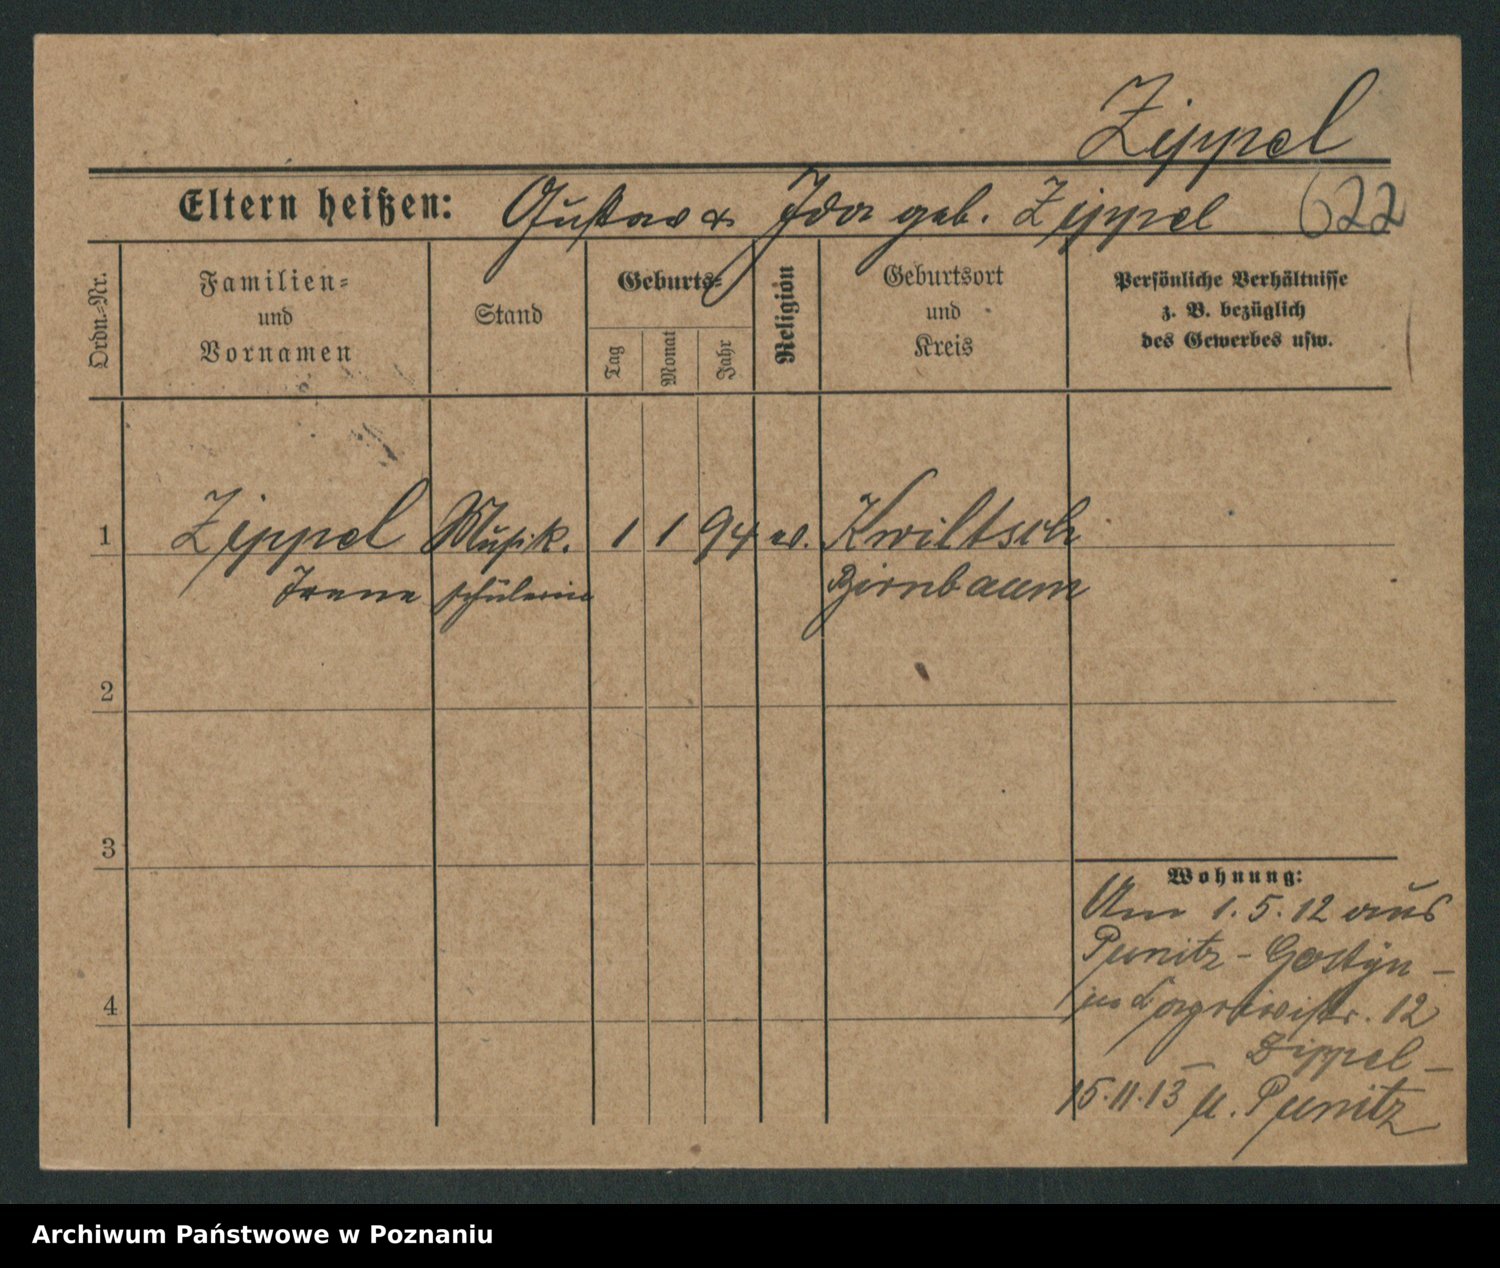 Zippel
Eltern heißen: Gustav & Ida geb. Zippel 622
Ordn.-Nr.
Familien-
und
Vornamen
Stand
Geburts-
Tag
Monat
Jahr
Religion
Geburtsort
und
Kreis
Persönliche Verhältnisse
z. B. bezüglich
des Gewerbes usw.
1 Zippel Musik. 1 1 94 ev. Kwiltsch
Irene schülerin Birnbaum
2
3
4
Wohnung:
Am 1.5.12 aus
Punitz - Gostyn -
12
Zippel -
15.11.13 n. Punitz
Archiwum Państwowe w Poznaniu